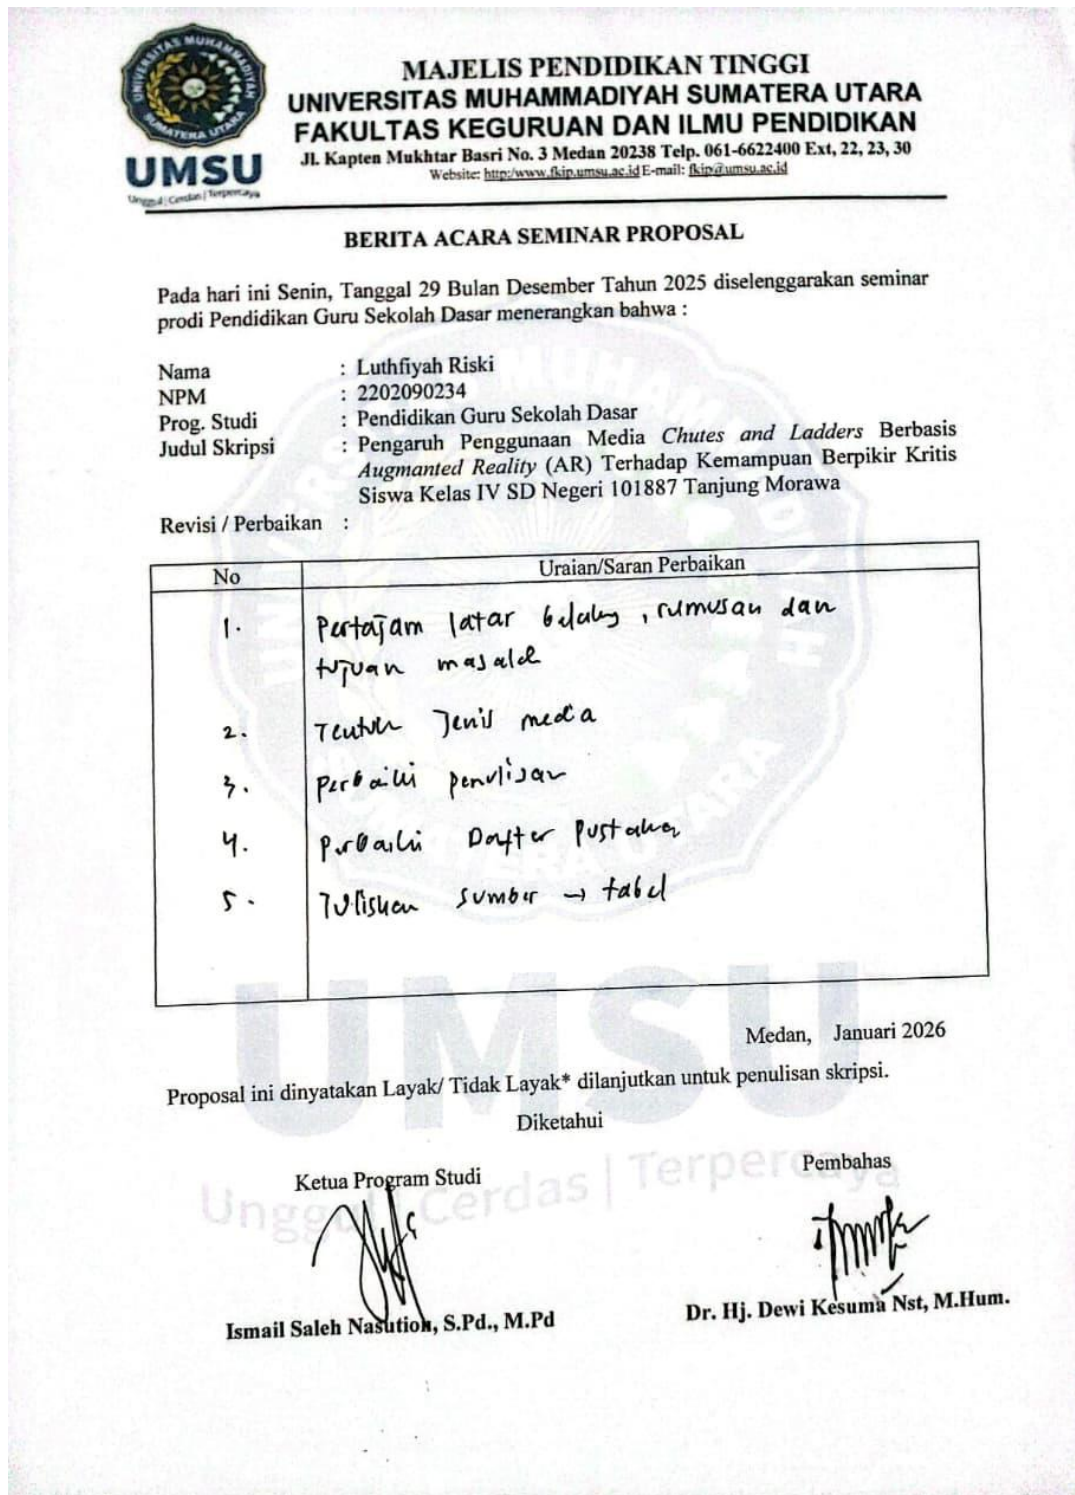 UNIVERSITAS MUHAMMADIYAH
SUMATERA UTARA
UMSU
Unggul | Cerdas | Terpercaya
MAJELIS PENDIDIKAN TINGGI
UNIVERSITAS MUHAMMADIYAH SUMATERA UTARA
FAKULTAS KEGURUAN DAN ILMU PENDIDIKAN
Jl. Kapten Mukhtar Basri No. 3 Medan 20238 Telp. 061-6622400 Ext, 22, 23, 30
Website: http:/www.fkip.umsu.ac.id E-mail: fkip@umsu.ac.id
BERITA ACARA SEMINAR PROPOSAL
Pada hari ini Senin, Tanggal 29 Bulan Desember Tahun 2025 diselenggarakan seminar
prodi Pendidikan Guru Sekolah Dasar menerangkan bahwa :
Nama : Luthfiyah Riski
NPM : 2202090234
Prog. Studi : Pendidikan Guru Sekolah Dasar
Judul Skripsi : Pengaruh Penggunaan Media Chutes and Ladders Berbasis
Augmanted Reality (AR) Terhadap Kemampuan Berpikir Kritis
Siswa Kelas IV SD Negeri 101887 Tanjung Morawa
Revisi / Perbaikan :
No Uraian/Saran Perbaikan
1. Pertajam latar belakang, rumusan dan
tujuan masalah
2. Tentukan Jenis media
3. Perbaiki penulisan
4. Perbaiki Daftar Pustaka
5. Tuliskan sumber → tabel
UMSU
Unggul | Cerdas | Terpercaya
Medan, Januari 2026
Proposal ini dinyatakan Layak/ Tidak Layak* dilanjutkan untuk penulisan skripsi.
Diketahui
Ketua Program Studi Pembahas
Ismail Saleh Nasution, S.Pd., M.Pd Dr. Hj. Dewi Kesuma Nst, M.Hum.